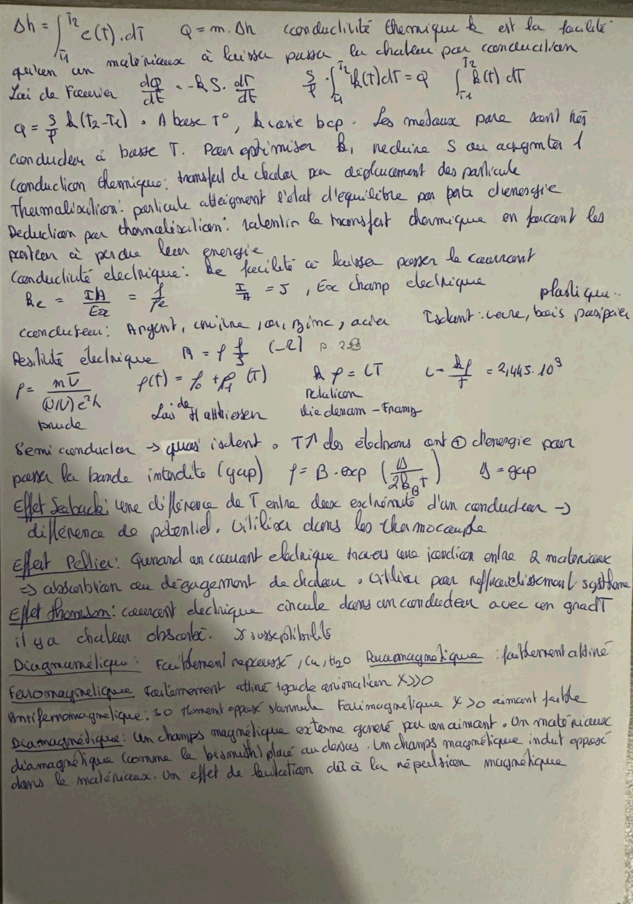 Δh = ∫T1^T2 c(T).dT Q = m.Δh conductivité thermique k est la facilité
qu'en un matériaux à laisser passer la chaleur par conduction
Loi de Fourier dQ/dt = -k S. dT/dt S/ρ . ∫T1^T2 k(T)dT = Q ∫T1^T2 k(T) dT
Q = S/ρ k(T2-T1) . A basse T°, k varie bcp. Les metaux purs sont très
conducteur à basse T. Pour optimiser k, reduire S ou augmenter l
Conduction thermique: transfert de chaleur par déplacement des particule
Thermalisation: particule atteignent l'état d'équilibre par perte d'energie
Reduction par thermalisation: ralentir le transfert thermique en forcant les
à perdre leur energie
Conductivité electrique: facilité à laisser passer le courrant
= I/A / Ex = I/A = J, Ex champ electrique plastique..
conducteur: Argent, cuivre, or, zinc, acier Isolant: verre, bois papier
électrique R = ρ
ρ = ρ(T) = ρ0 + ρ1 (T) k ρ = LT L = kρ/T = 2,445.10
Loi de Matthiesen relation Wiedemann-Franz
Semi conducteur → quasi isolent. T↗ des électrons ont ⊕ d'energie pour
passer la bande interdite (gap) ρ = B.exp (Δ/2kB T) Δ = gap
Effet Seebeck: une différence de T entre deux extrémité d'un conducteur →
différence de potentiel. Utiliser dans les thermocouple
Effet Peltier: Quand un courant electrique travers une jonction entre 2 materiaux
⇒ absorbtion ou dégagement de chaleur. Utiliser pour refroidissement système
Effet thomson: courrent electrique circule dans un conducteur avec un gradT
il y a chaleur absorbé. χ susceptibilité
Diagmanétique: Faiblement repoussé, Cu, H2O Paramagnetique: faiblement attiré
Ferromagnetique fortement attiré χ>>0
Antiferromagnetique: moment opposé s'annule Ferimagnetique χ>0 aimant faible
Diamagnétique: Un champs magnétique externe generé par un aimant. Un matériaux
diamagnétique (comme le bismuth) placé au dessus. Un champs magnétique induit opposé
dans le matériaux. Un effet de dû à la répulsion magnétique